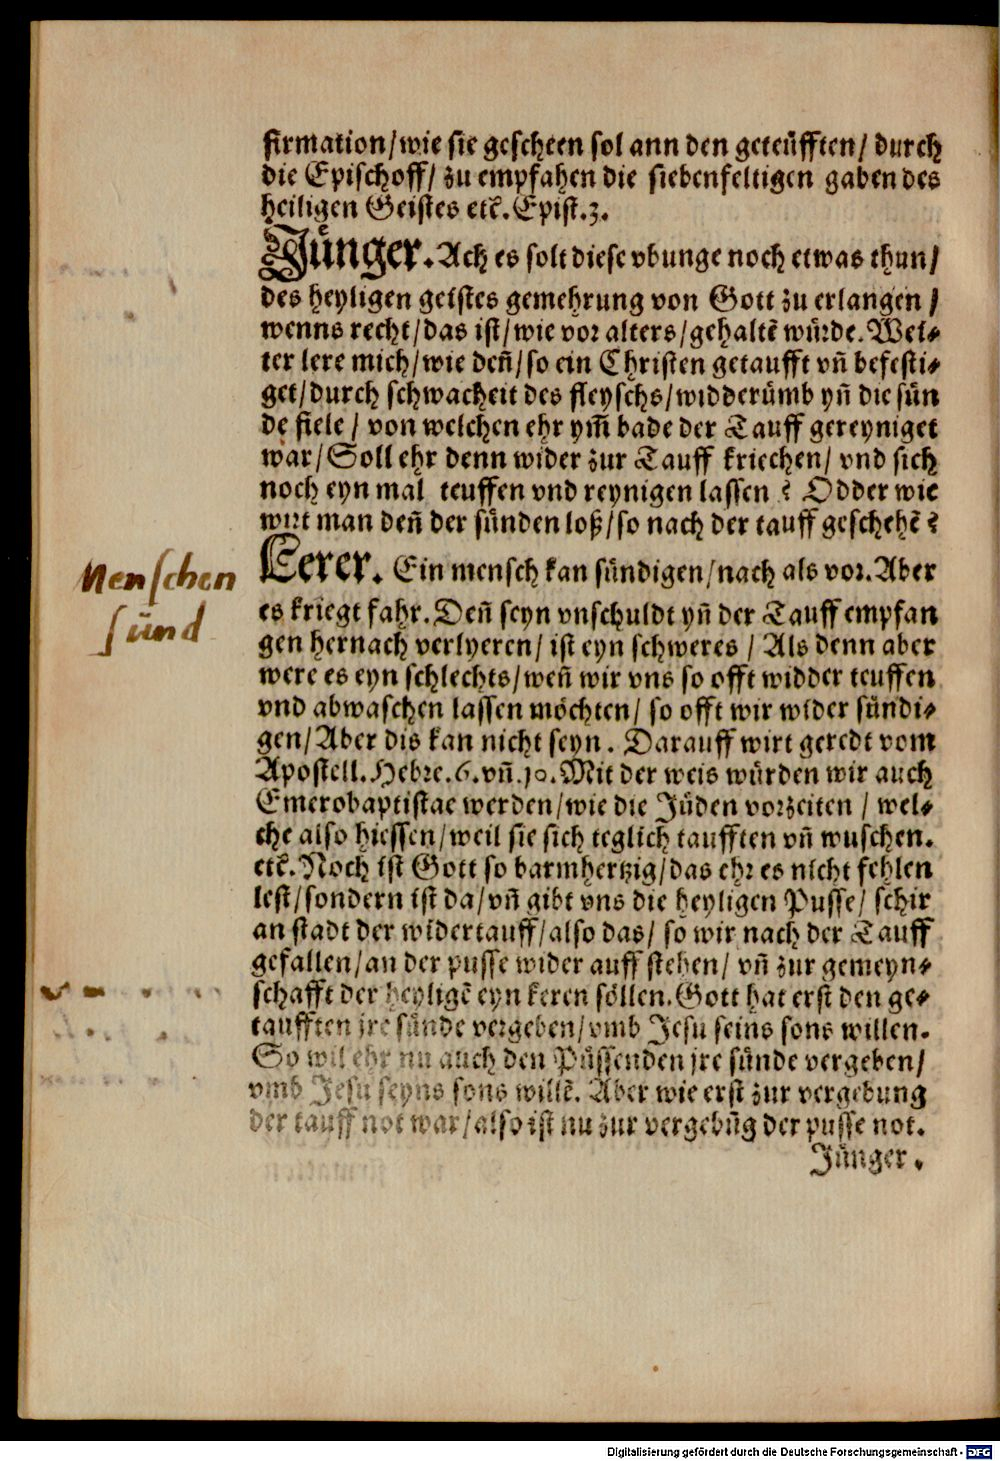 firmation/wie sie gescheen sol ann den geteüfften/ durch
die Epischoff/ zu empfahen die siebenfeltigen gaben des
heiligen Geistes etc̃. Epist.3.
Jünger. Ach es solt diese vbunge noch etwas thun/
des heyligen geistes gemehrung von Gott zu erlangen/
wenns recht/das ist/wie vor alters/gehaltẽ würde. Wei⸗
ter lere mich/wie deñ/so ein Christen getaufft vñ befesti⸗
get/durch schwacheit des fleyschs/widderümb yñ die sün
de fiele/ von welchen ehr ym̃ bade der Tauff gereyniget
war/Soll ehr denn wider zur Tauff kriechen/ vnd sich
noch eyn mal teuffen vnd reynigen lassen? Odder wie
wirt man deñ der sünden loß/so nach der tauff geschehẽ?
Lerer. Ein mensch kan sündigen/nach als vor. Aber
Menschen
sünd
es kriegt fahr. Deñ seyn vnschuldt yñ der Tauff empfan
gen hernach verlyeren/ ist eyn schweres/ Als denn aber
were es eyn schlechts/weñ wir vns so offt widder teuffen
vnd abwaschen lassen möchten/ so offt wir wider sündi⸗
gen/Aber dis kan nicht seyn. Darauff wirt geredt vom
Apostell. Hebre.6.vñ.10. Mit der weis würden wir auch
Emerobaptistae werden/wie die Jüden vorzeiten/ wel⸗
che also hiessen/weil sie sich teglich taufften vñ wuschen.
etc̃. Noch ist Gott so barmhertzig/das ehr es nicht fehlen
lest/sondern ist da/vñ gibt vns die heyligen Pusse/ schir
an stadt der widertauff/also das/ so wir nach der Tauff
gefallen/an der pusse wider auff stehen/ vñ zur gemeyn⸗
schafft der heyligẽ eyn keren söllen. Gott hat erst den ge⸗
taufften jre sünde vergeben/vmb Jesu seins sons willen.
So wil ehr nu auch den Püssenden jre sünde vergeben/
vmb Jesu seyns sons willẽ. Aber wie erst zur vergebung
der tauff not war/also ist nu zur vergebũg der pusse not.
Jünger.
Digitalisierung gefördert durch die Deutsche Forschungsgemeinschaft - DFG